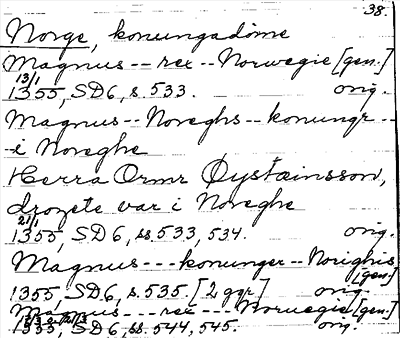 38.
Norge, konungadöme
Magnus -- rex -- Norwegie [gen.]
13/1
1355, SD6, s. 533. orig.
Magnus -- Noreghs -- konungr --
i Noreghe
Herra Ormr Øysteinsson,
drozete var i Noreghe
21/1
1355, SD6, ss. 533, 534. orig.
Magnus --- konunger -- Norighis
[gen.]
1355, SD6, s. 535. [2 ggr] orig.
Magnus --- rex --- Norwegie [gen.]
1355, SD6, ss. 544, 545. orig.